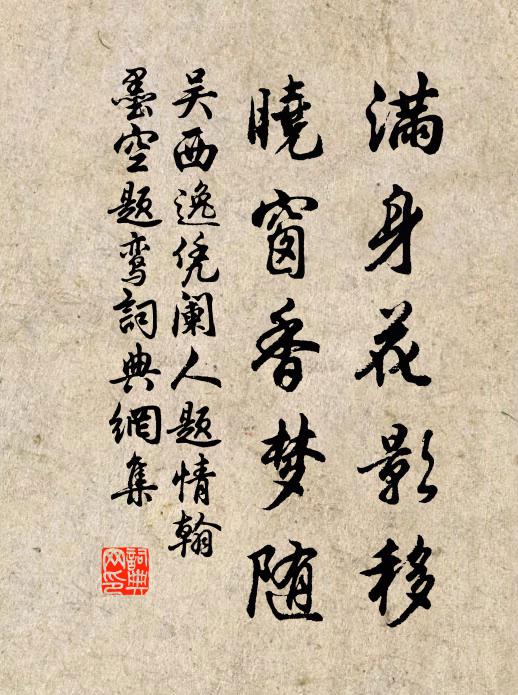 滿身花影移
曉窗香梦随
吴西逸凭阑人题情翰
墨空题鸾詞典網集
詞典网印